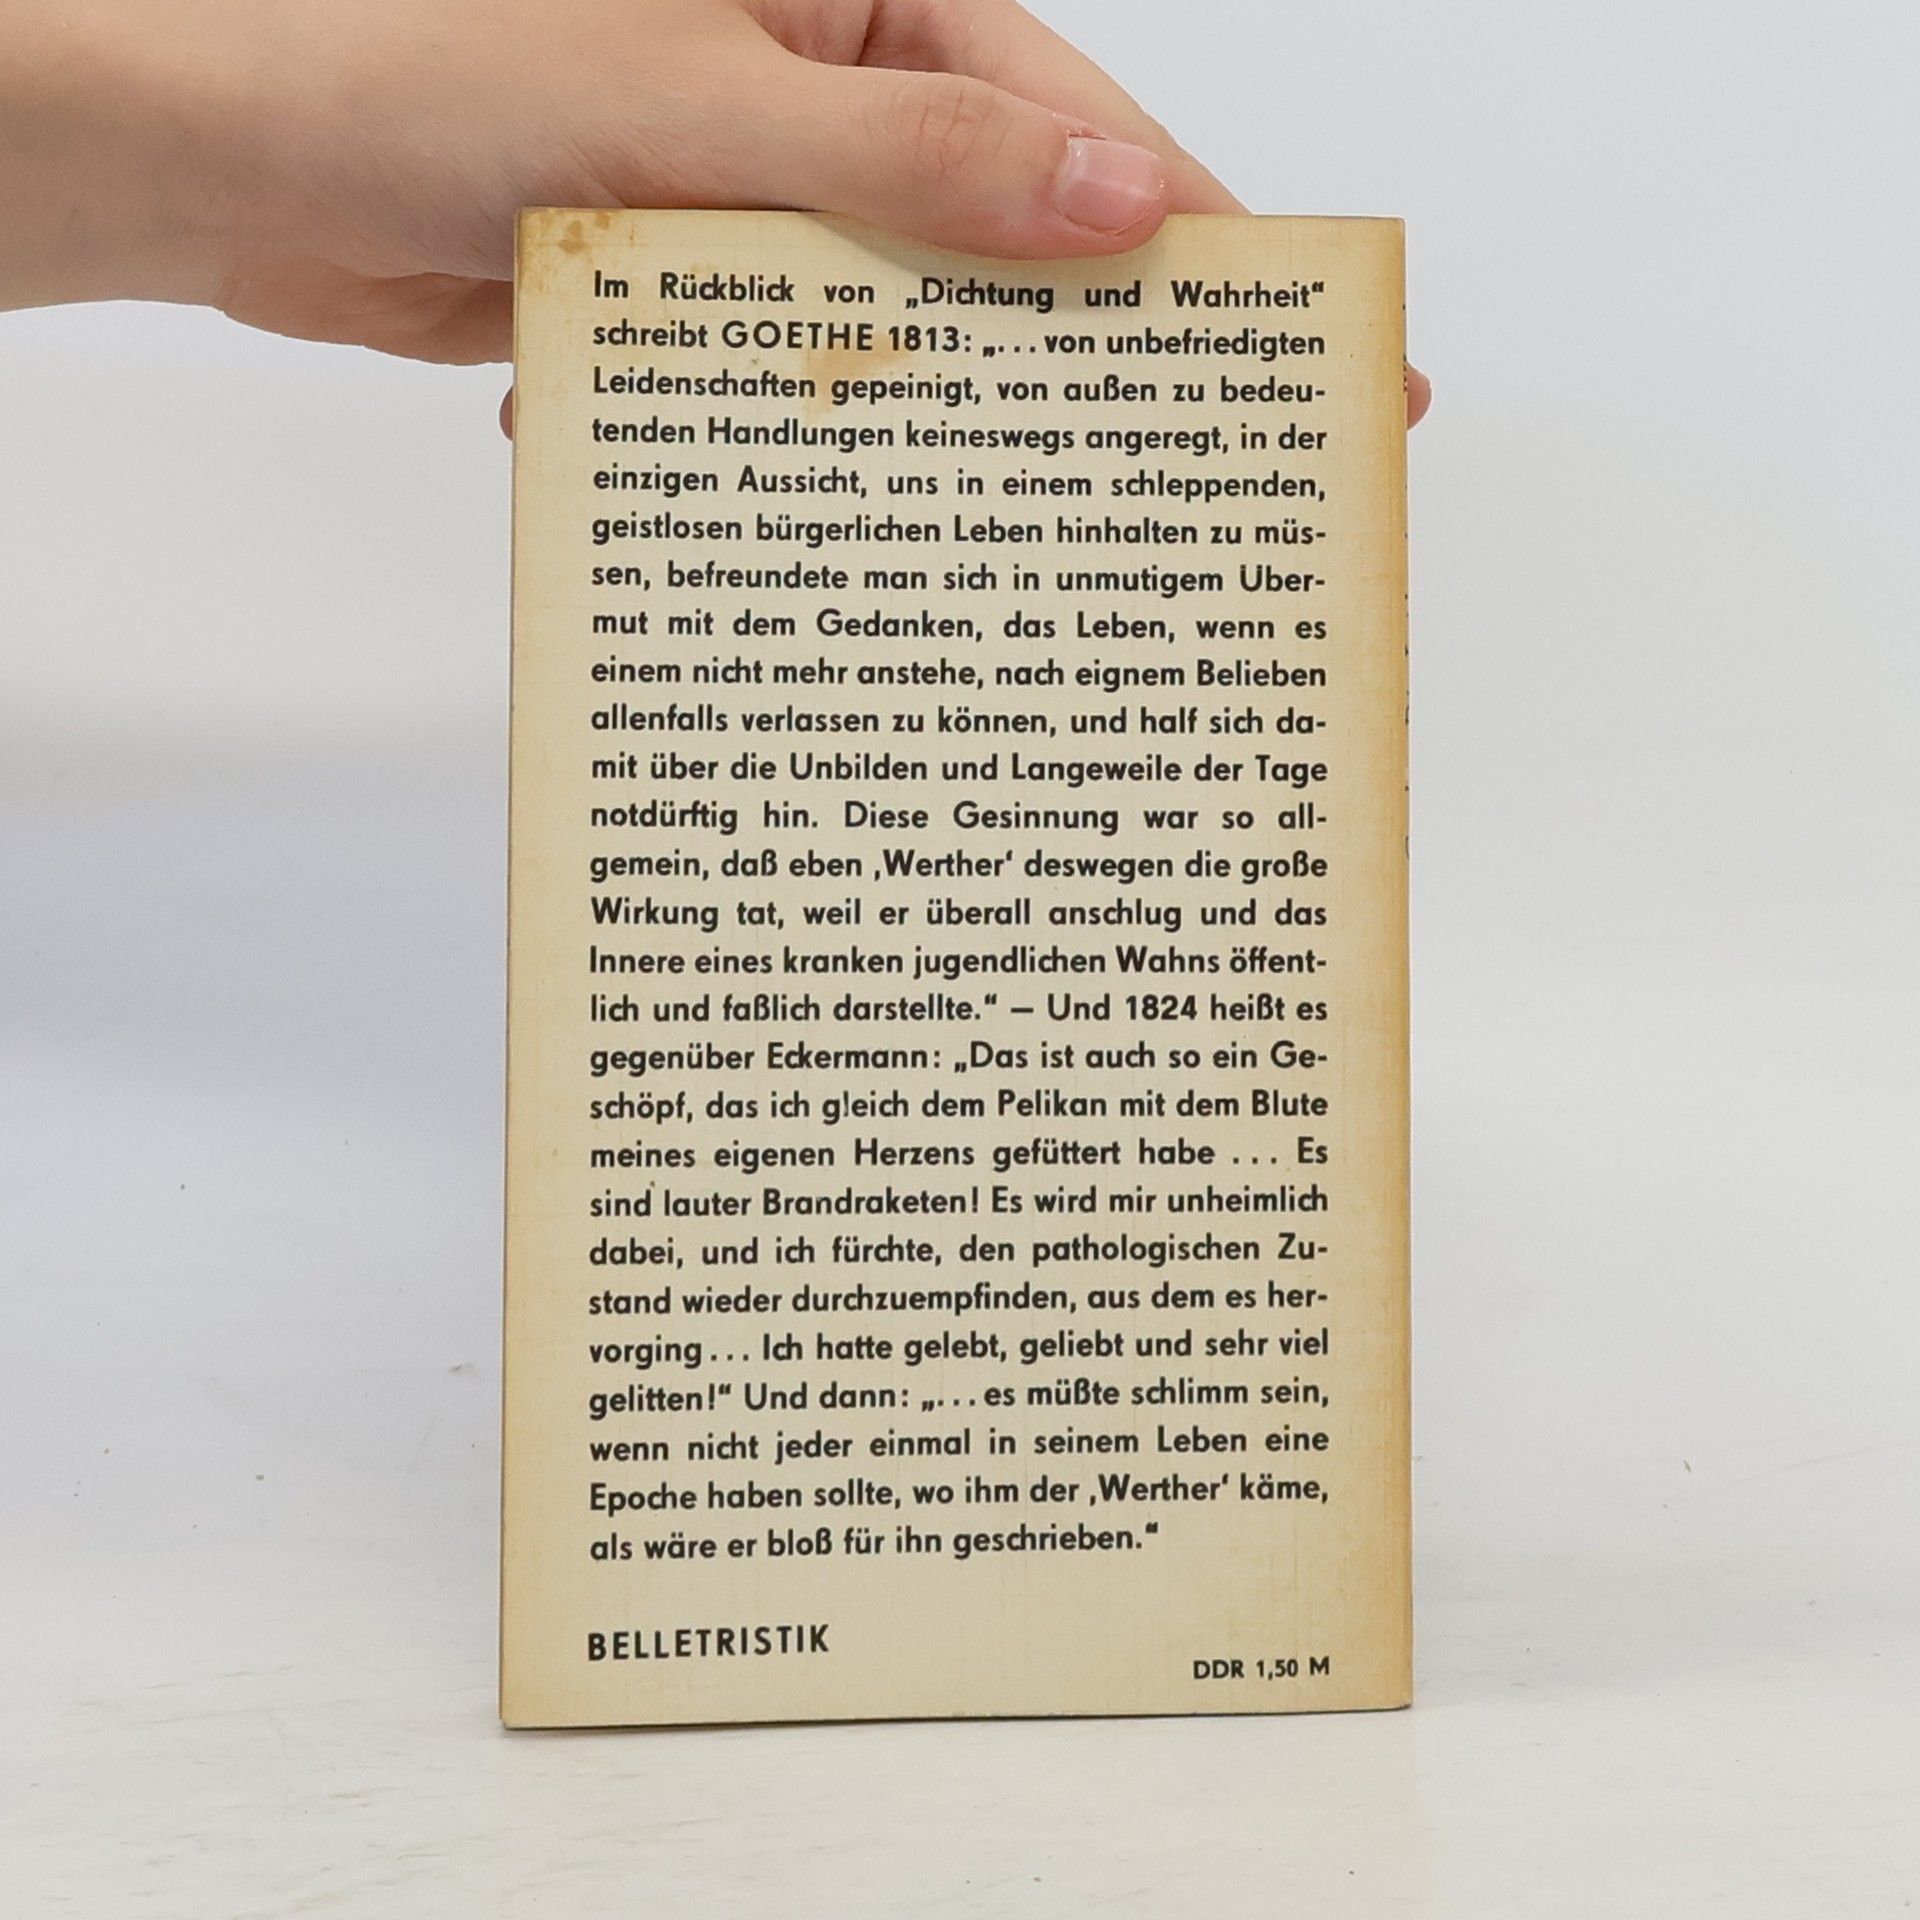 Im Rückblick von „Dichtung und Wahrheit“
schreibt GOETHE 1813: „... von unbefriedigten
Leidenschaften gepeinigt, von außen zu bedeu-
tenden Handlungen keineswegs angeregt, in der
einzigen Aussicht, uns in einem schleppenden,
geistlosen bürgerlichen Leben hinhalten zu müs-
sen, befreundete man sich in unmutigem Uber-
mut mit dem Gedanken, das Leben, wenn es
einem nicht mehr anstehe, nach eignem Belieben
allenfalls verlassen zu können, und half sich da-
mit über die Unbilden und Langeweile der Tage
notdürftig hin. Diese Gesinnung war so all-
gemein, daß eben ‚Werther‘ deswegen die große
Wirkung tat, weil er überall anschlug und das
Innere eines kranken jugendlichen Wahns öffent-
lich und faßlich darstellte.“ — Und 1824 heißt es
gegenüber Eckermann: „Das ist auch so ein Ge-
schöpf, das ich gleich dem Pelikan mit dem Blute
meines eigenen Herzens gefüttert habe ... Es
sind lauter Brandraketen! Es wird mir unheimlich
dabei, und ich fürchte, den pathologischen Zu-
stand wieder durchzuempfinden, aus dem es her-
vorging ... Ich hatte gelebt, geliebt und sehr viel
gelitten!“ Und dann: „... es müßte schlimm sein,
wenn nicht jeder einmal in seinem Leben eine
Epoche haben sollte, wo ihm der ‚Werther‘ käme,
als wäre er bloß für ihn geschrieben.“
BELLETRISTIK
DDR 1,50 M